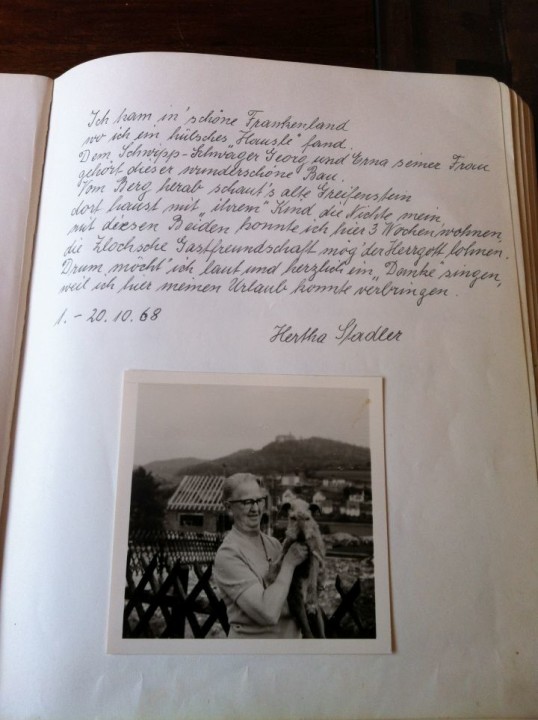 Ich kam in's schöne Frankenland
wo ich ein hübsches „Häusle" fand.
Dem Schwipp-Schwager Georg und Erna seiner Frau
gehört dieser wunderschöne Bau.
Vom Berg herab schaut's alte Greifenstein
dort haust mit „ihrem" Kind die Nichte mein,
mit diesen Beiden konnte ich hier 3 Wochen wohnen,
die Zlochsche Gastfreundschaft mög' der Herrgott lohnen.
Drum möcht' ich laut und herzlich ein „Danke" singen,
weil ich hier meinen Urlaub konnte verbringen.
1. – 20. 10. 68
Hertha Stadler